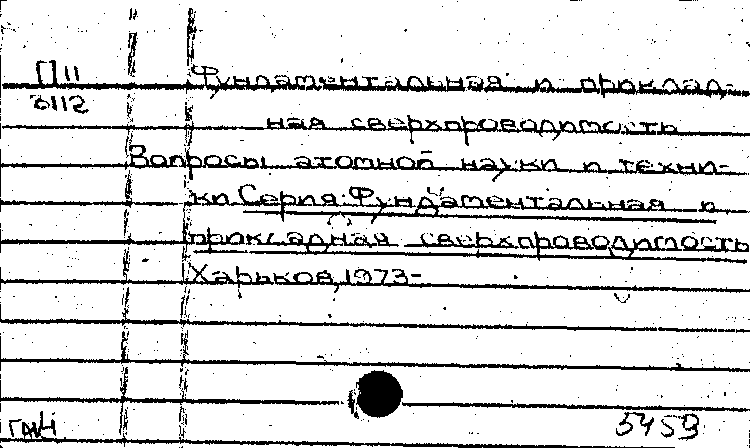 П11 Фундаментальная и проклад-
3112
ная сверхпроводимость
Вопросы атомной науки и техни-
ки Серия: Фундаментальная и
прокладная сверхпроводимость
Харьков, 1973-
5459